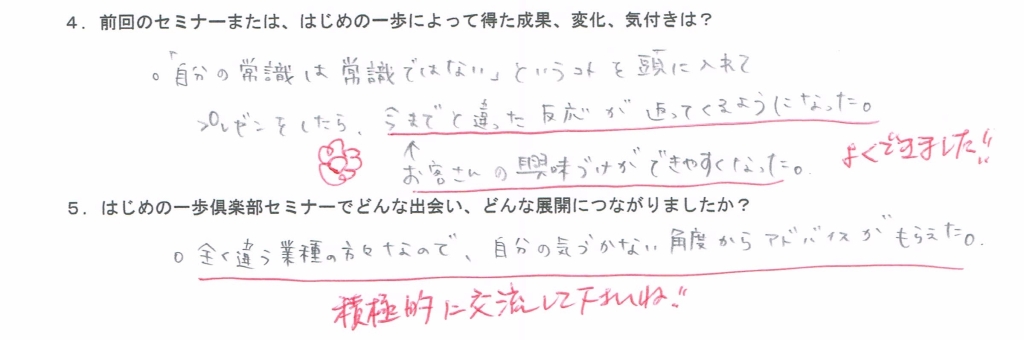 ４．前回のセミナーまたは、はじめの一歩によって得た成果、変化、気付きは？
○「自分の常識は常識ではない」というコトを頭に入れて
プレゼンをしたら、今までと違った反応が返ってくるようになった。
よくできました!!
↑
お客さんの興味づけができやすくなった。
５．はじめの一歩倶楽部セミナーでどんな出会い、どんな展開につながりましたか？
○ 全く違う業種の方々なので、自分の気づかない角度からアドバイスがもらえた。
積極的に交流して下さいね!!